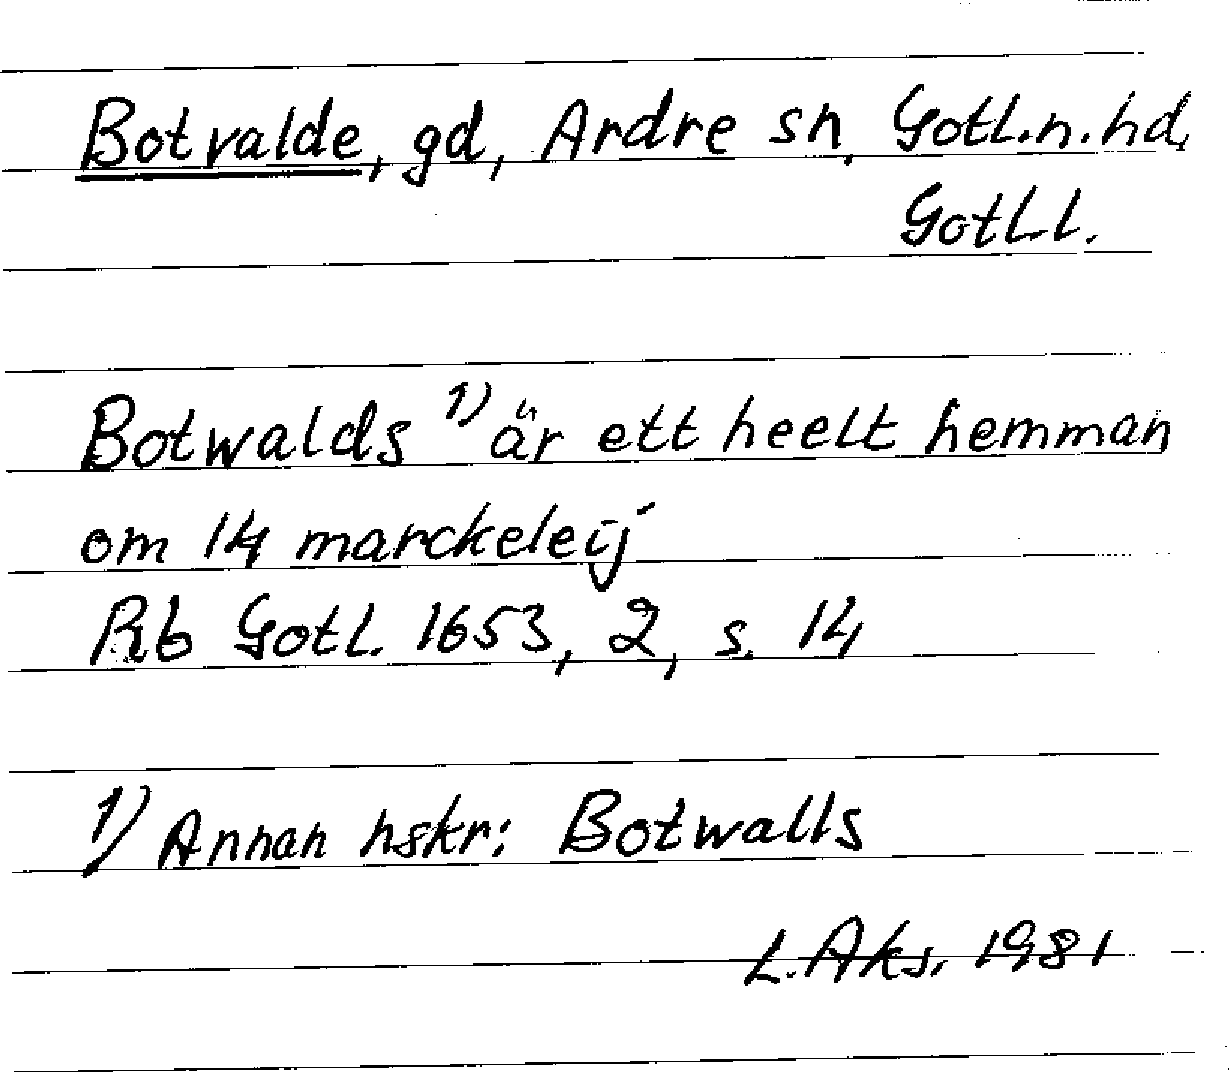 Botvalde, gd, Ardre sn, Gotl.n.hd,
Gotl.l.
Botwalds 1) är ett heelt hemman
om 14 marckeleij
Rb Gotl. 1653, 2, s. 14
1) Annan hskr: Botwalls
L.Aks. 1981